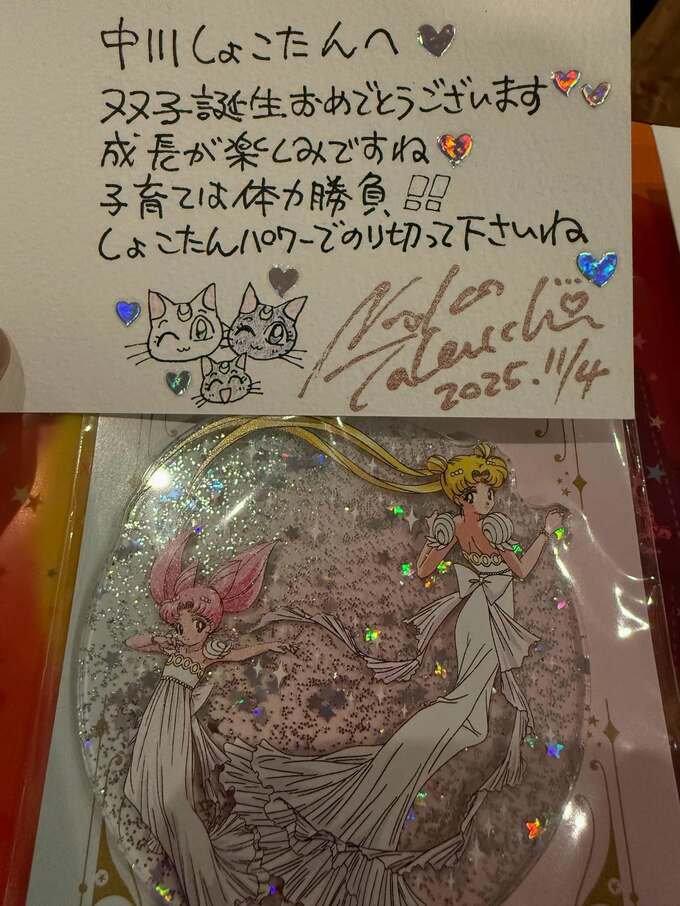 中川しょこたんへ
双子誕生おめでとうございます
成長が楽しみですね
子育ては体力勝負!!
しょこたんパワーでのり切って下さいね
Naoko
Takeuchi
2025.11/4